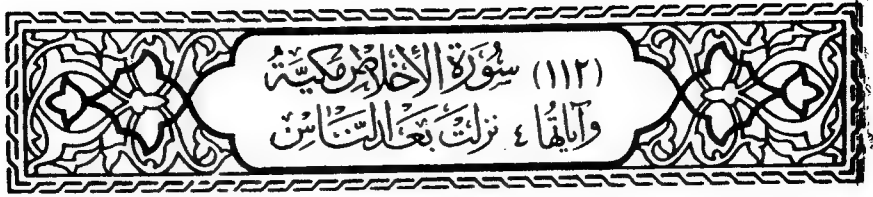 (١١٢) سُورَةُ الْإِخْلَاصِ مَكِّيَّةٌ
وَآيَاتُهَا ٤ نَزَلَتْ بَعْدَ النَّاسِ